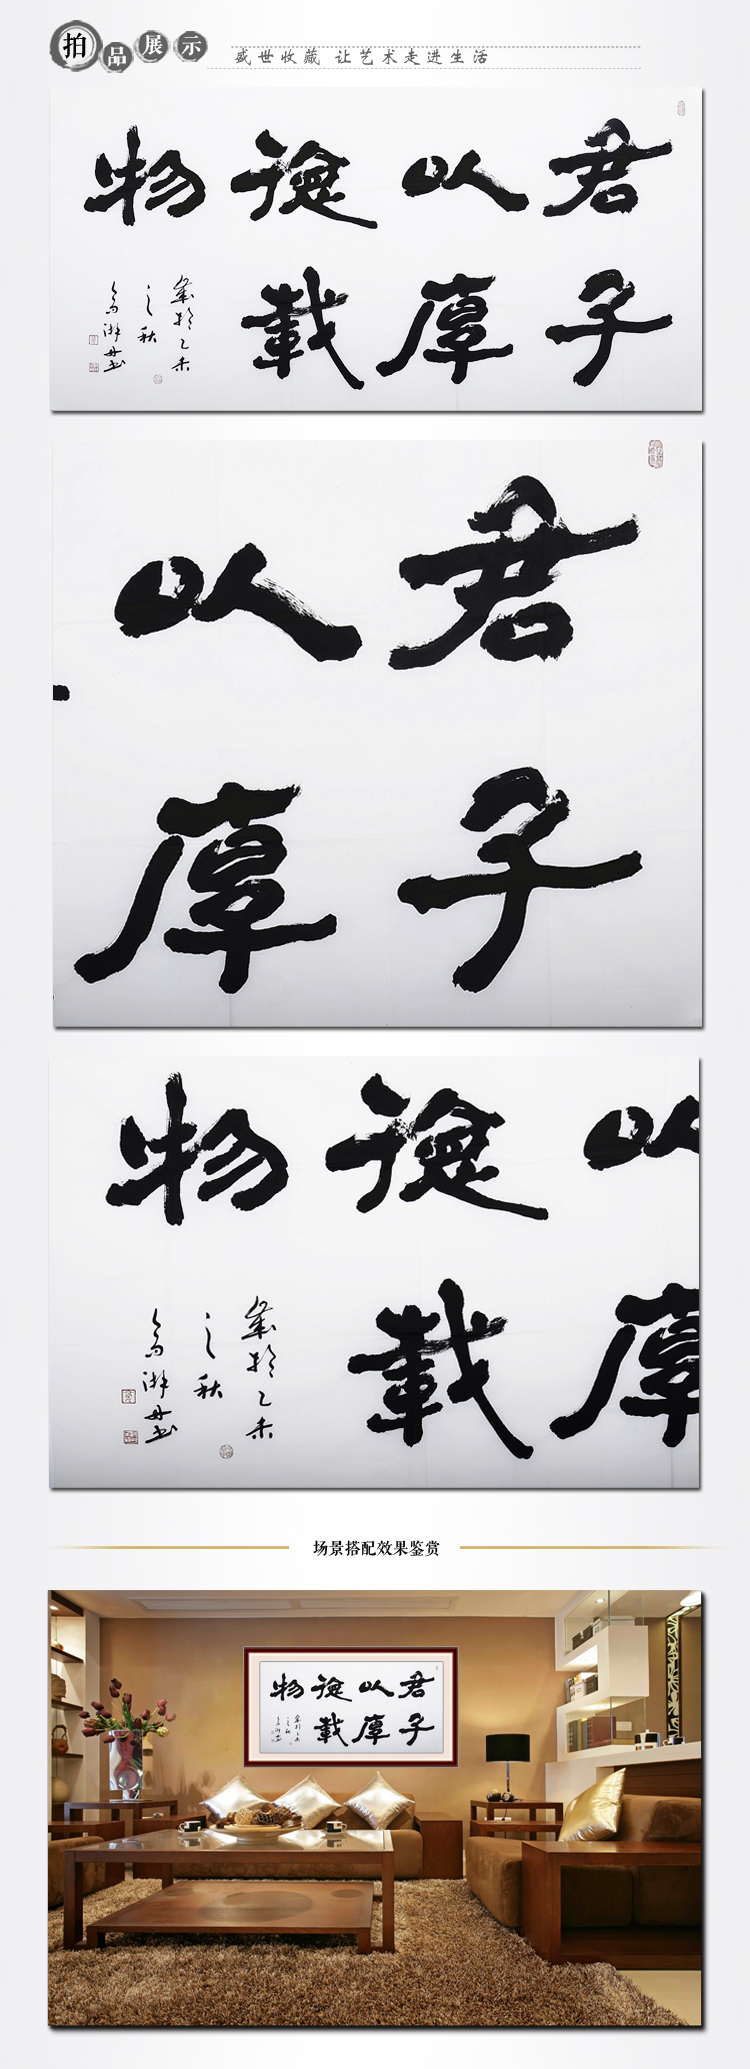 拍品展示
盛世收藏 让艺术走进生活
君子
以厚
德载
物
岁于乙未
之秋
君子
以厚
物
德载
以厚
岁于乙未
之秋
场景搭配效果鉴赏
君子
以厚
德载
物